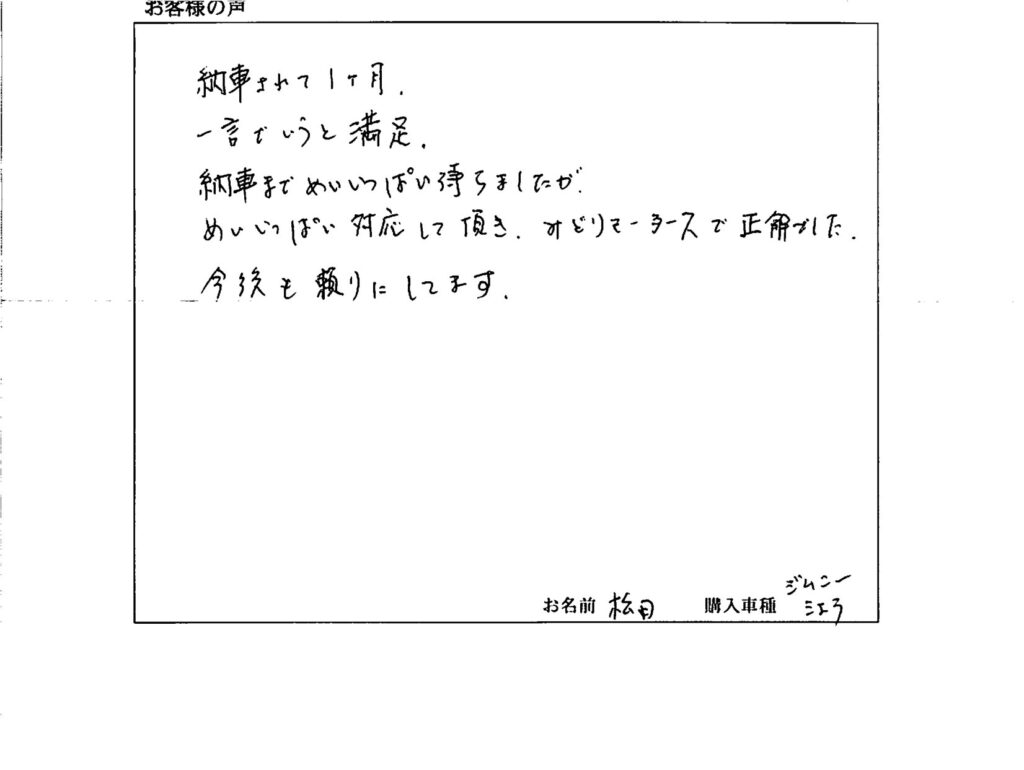 お客様の声
納車されて1ヶ月.
一言でいうと満足.
納車までめいいっぱい待ちましたが.
めいいっぱい対応して頂き.みどりモータースで正解でした.
今後も頼りにしてます.
お名前 松田 購入車種 ジムニー
シエラ